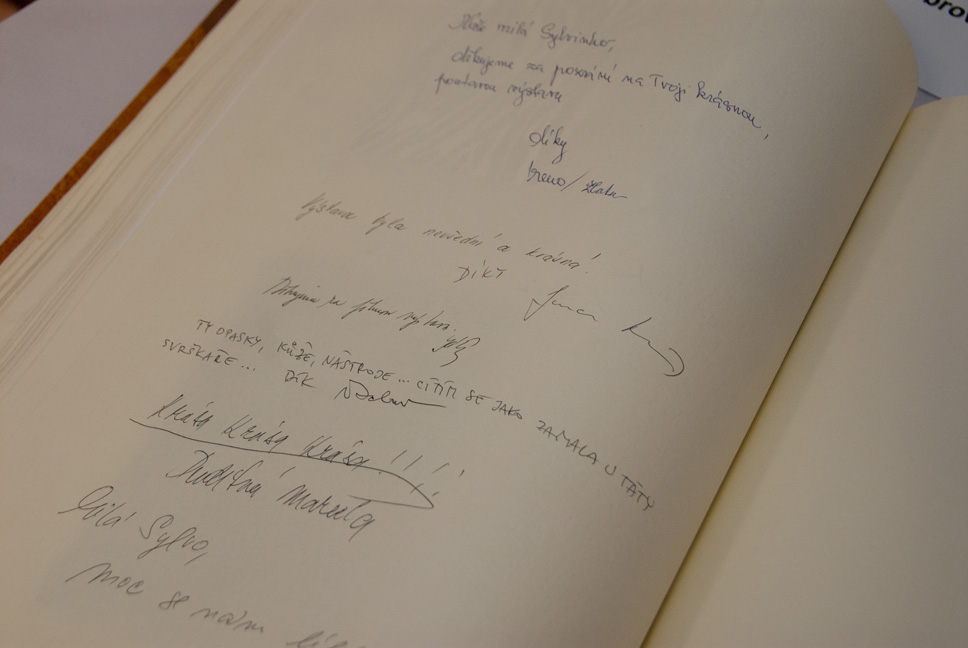 Naše milá Sylvinko,
děkujeme za pozvání na Tvoji krásnou,
výstavu
díky
Výstava byla nevšední a krásná!
DÍKY
Děkujeme za výstavu.
TY OPASKY, KŮŽE, NÁSTROJE... CÍTÍM SE JAKO ZAMALA U TÁTY
SVRŠKAŘE... DÍK
Krása Krása Krása!!!!
Milá Sylvo,
moc se nám
bro